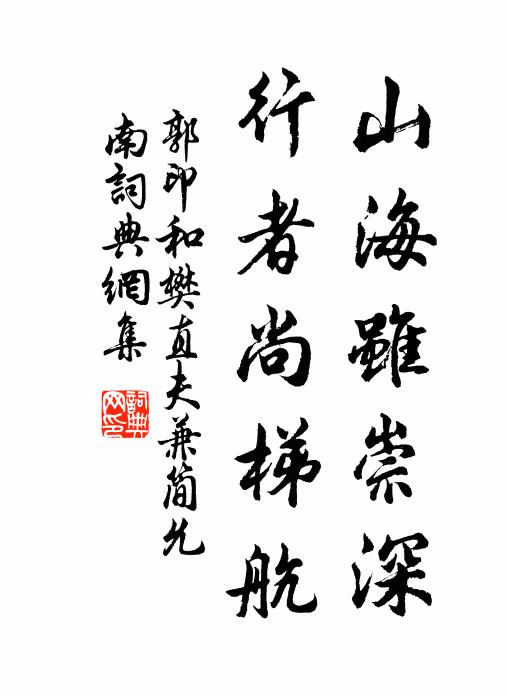 山海雖崇深
行者尚梯航
郭印和樊直夫兼簡允
南詞典網集
詞典網印